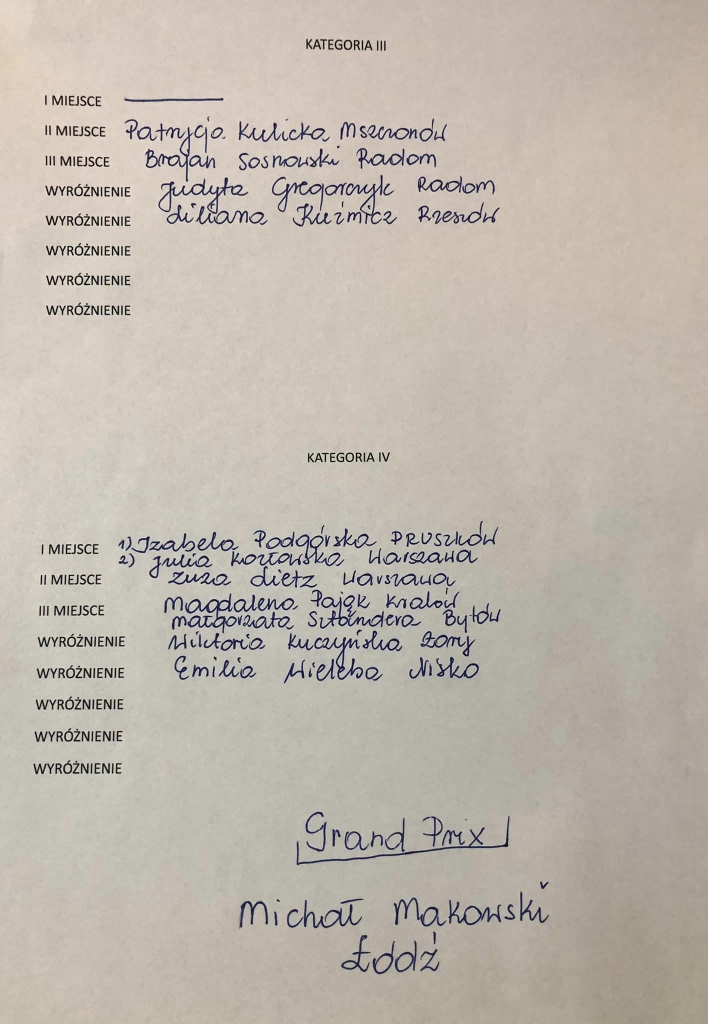 KATEGORIA III
I MIEJSCE
II MIEJSCE Patrycja Kulicka Mszczonów
III MIEJSCE Brajan Sosnowski Radom
WYRÓŻNIENIE Judyta Gregorczyk Radom
WYRÓŻNIENIE Liliana Kuźmicz Rzeszów
WYRÓŻNIENIE
WYRÓŻNIENIE
WYRÓŻNIENIE
KATEGORIA IV
I MIEJSCE 1) Izabela Podgórska PRUSZKÓW
2) Julia Kozłowska Warszawa
II MIEJSCE Zuza Dietz Warszawa
III MIEJSCE Magdalena Pająk Kraków
Małgorzata Bytów
WYRÓŻNIENIE Wiktoria Kuczyńska Żory
WYRÓŻNIENIE Emilia Wieleba Nisko
WYRÓŻNIENIE
WYRÓŻNIENIE
WYRÓŻNIENIE
Grand Prix
Michał Makowski
Łódź